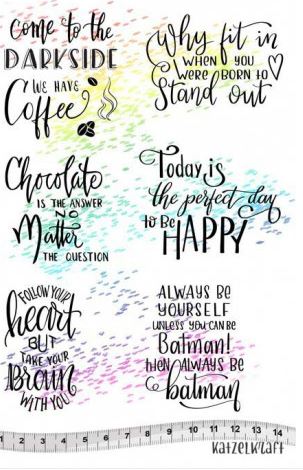 Come to the
DARKSIDE
WE HAVE
Coffee
Why fit in
WHEN YOU
WERE BORN TO
Stand out
Chocolate
IS THE ANSWER
NO
Matter
THE QUESTION
Today is
the perfect day
to Be
HAPPY
FOLLOW YOUR
heart
BUT
TAKE YOUR
Brain
WITH YOU
ALWAYS BE
YOURSELF
UNLESS YOU CAN BE
Batman!
then ALWAYS BE
batman
1 2 3 4 5 6 7 8 9 10 11 12 13 14
KATZELKRAFT